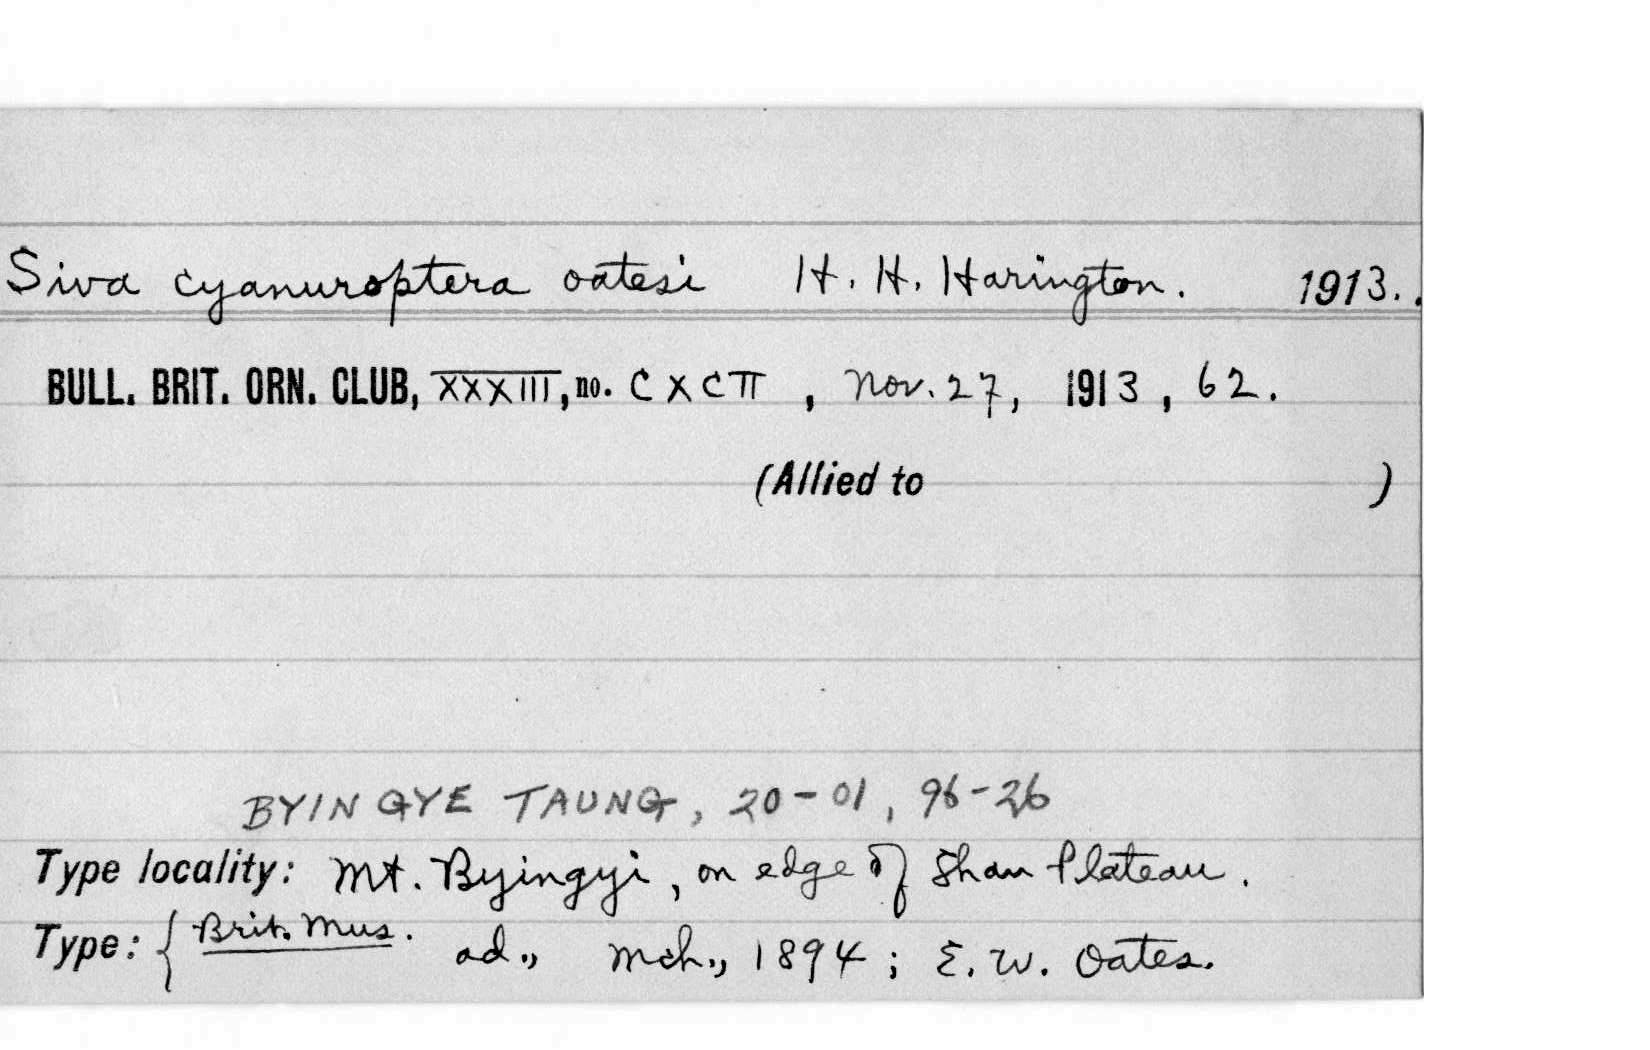 Siva cyanuroptera oatesi H. H. Harington. 1913..
BULL. BRIT. ORN. CLUB, XXXIII, no. CXCII, Nov. 27, 1913, 62.
(Allied to )
BYINGYE TAUNG, 20-01, 96-26
Type locality: Mt. Byingyi, on edge of Shan Plateau.
Type: { Brit. Mus. ad., Mch., 1894; E. W. Oates.